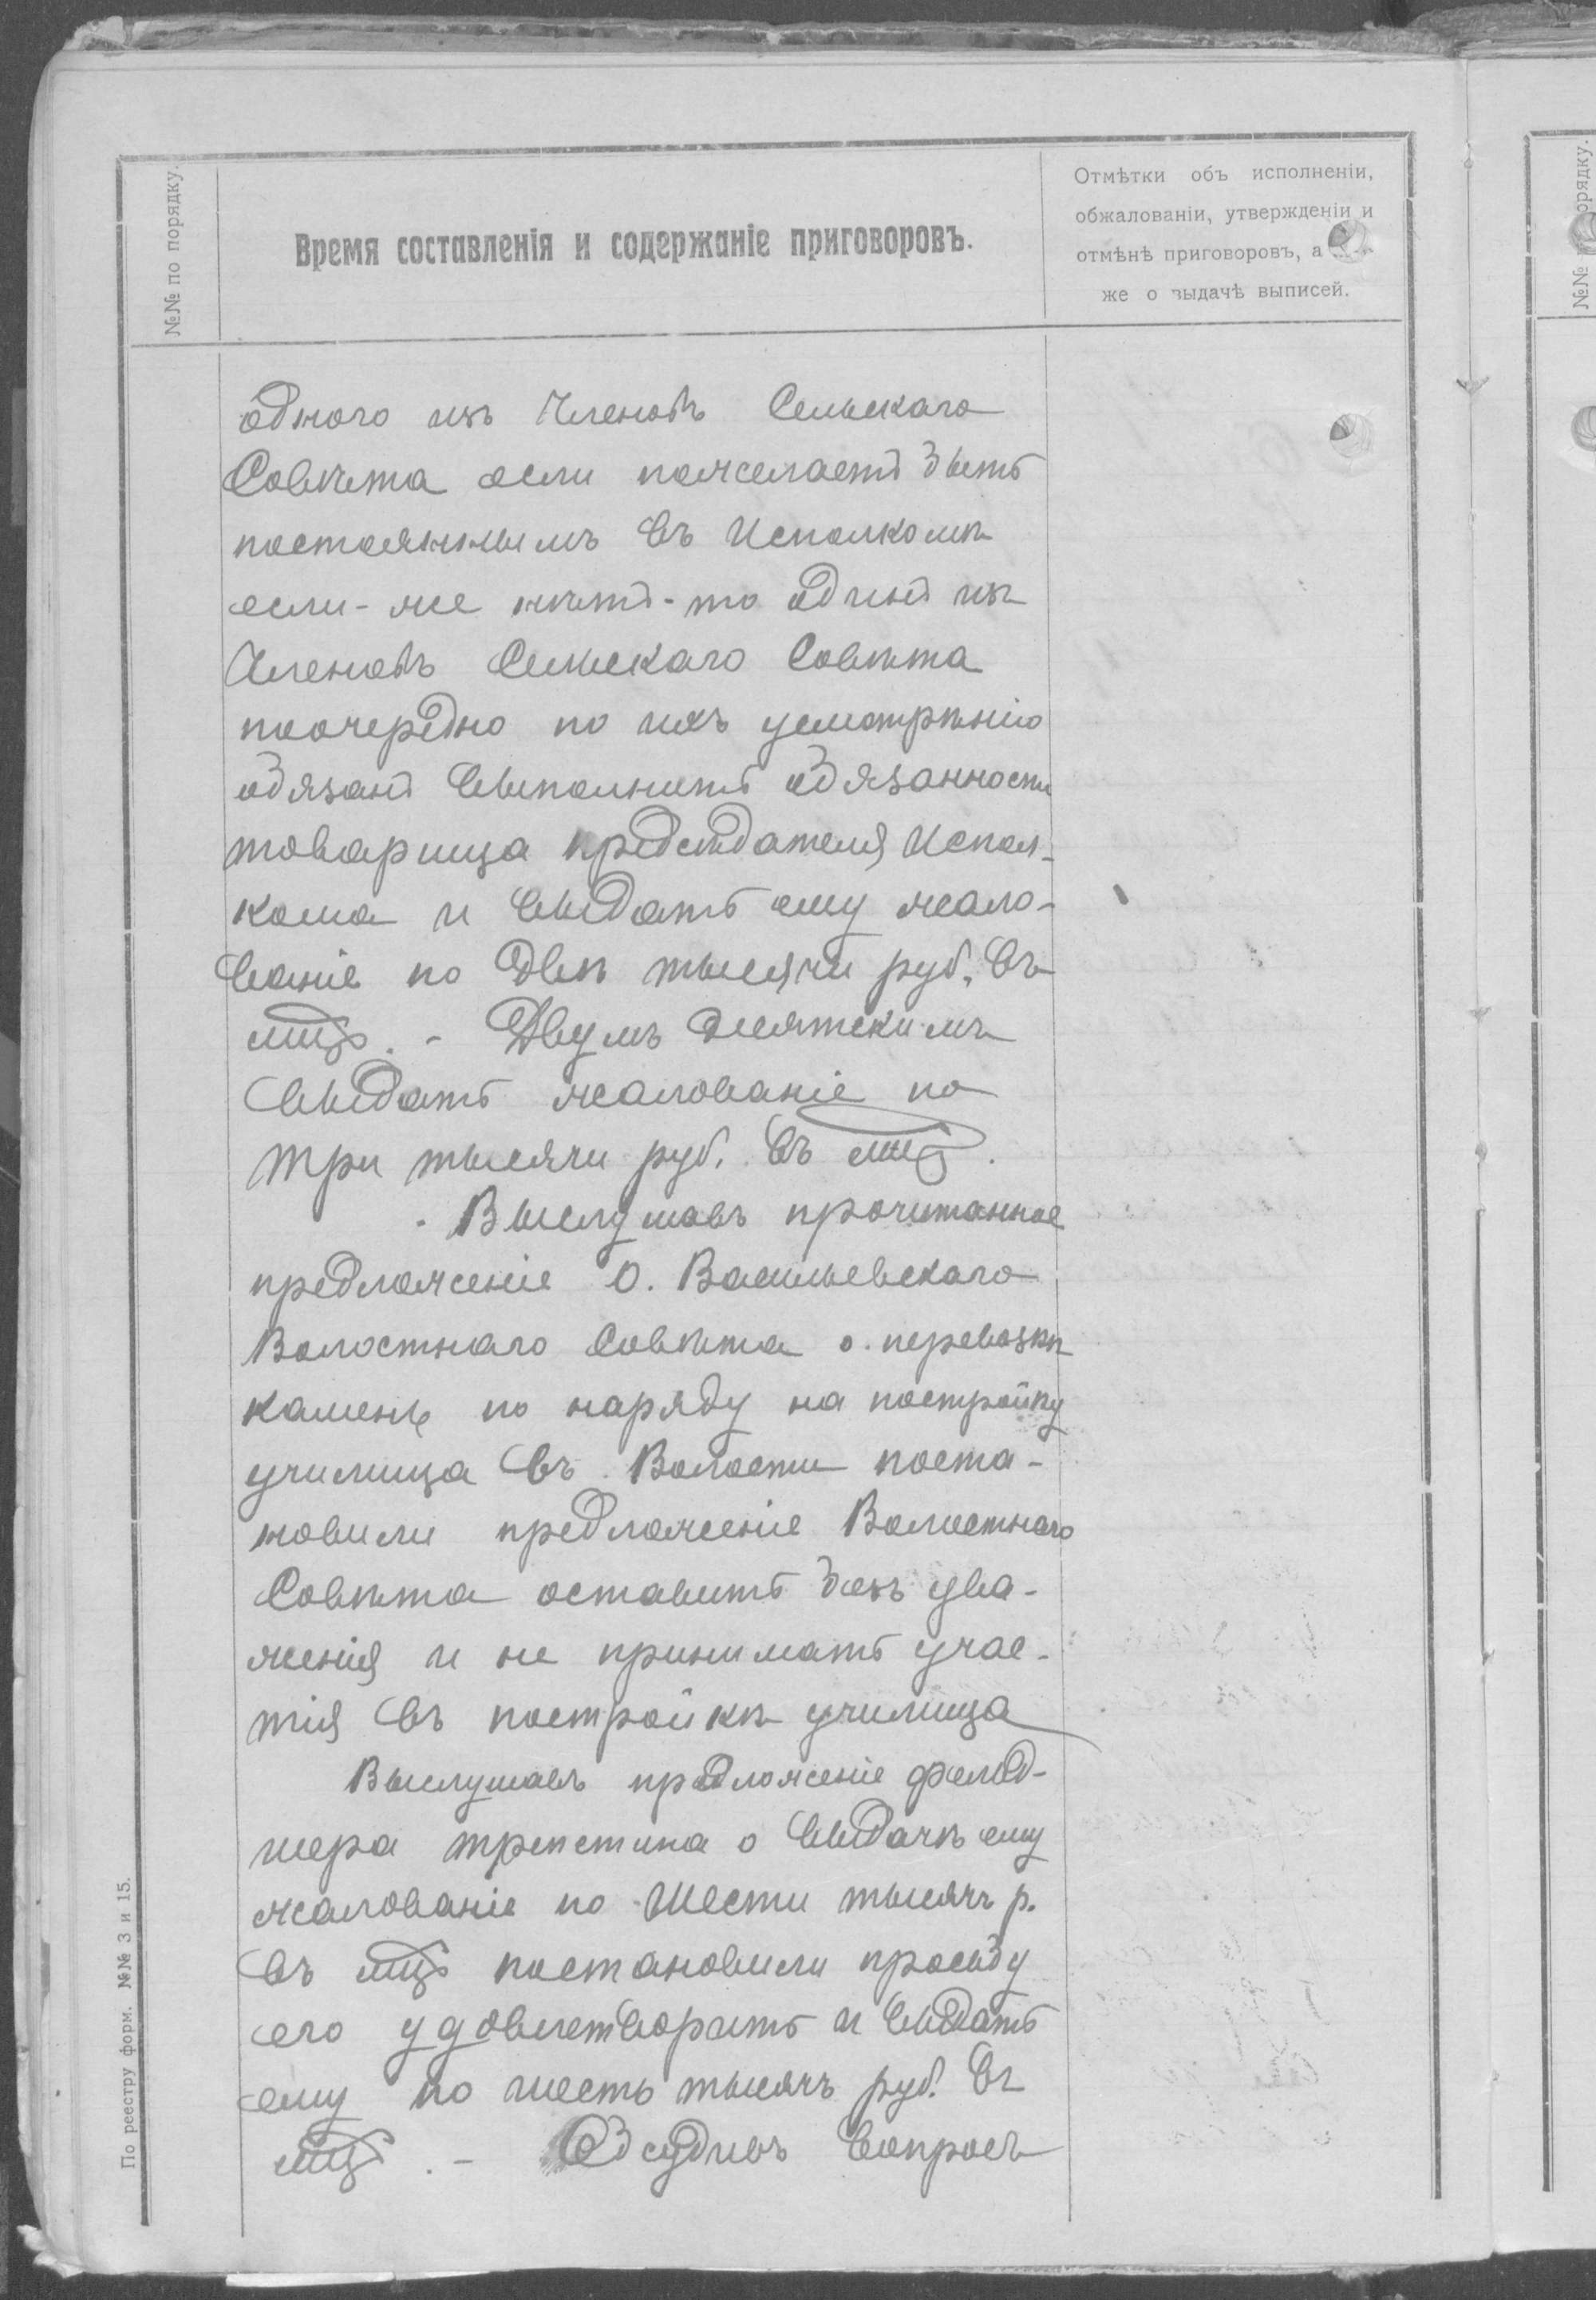 №№ по порядку.
Время составленія и содержаніе приговоровъ.
Отмѣтки объ исполненіи,
обжалованіи, утвержденіи и
отмѣнѣ приговоровъ, а
же о выдачѣ выписей.
одного изъ Членовъ Сельскаго
Совѣта если пожелаетъ быть
постояннымъ въ Исполкомѣ
если-же нѣтъ-то одинъ изъ
Членовъ Сельскаго Совѣта
поочередно по ихъ усмотрѣнію
обязанъ выполнить обязанности
товарища председателя Испол-
кома и выдать ему жало-
ваніе по двѣ тысячи руб. въ
мцъ. - Двумъ десятскимъ
выдать жалованіе по
три тысячи руб. въ мцъ.
- Выслушавъ прочитанное
предложеніе О. Васильевскаго
Волостнаго Совѣта о перевозкѣ
камень по наряду на постройку
училища въ Волости поста-
новили предложеніе Волостнаго
Совѣта оставить безъ ува-
женія и не принимать учас-
тія въ постройкѣ училища
Выслушавъ предложеніе фельд-
шера о выдачѣ ему
жалованіе по шести тысячъ р.
въ мцъ постановили просьбу
его удовлетворить и выдать
ему по шесть тысячъ руб. въ
мцъ. - Обсудивъ вопросъ
По реестру форм. №№ 3 и 15.
№№
орядку.